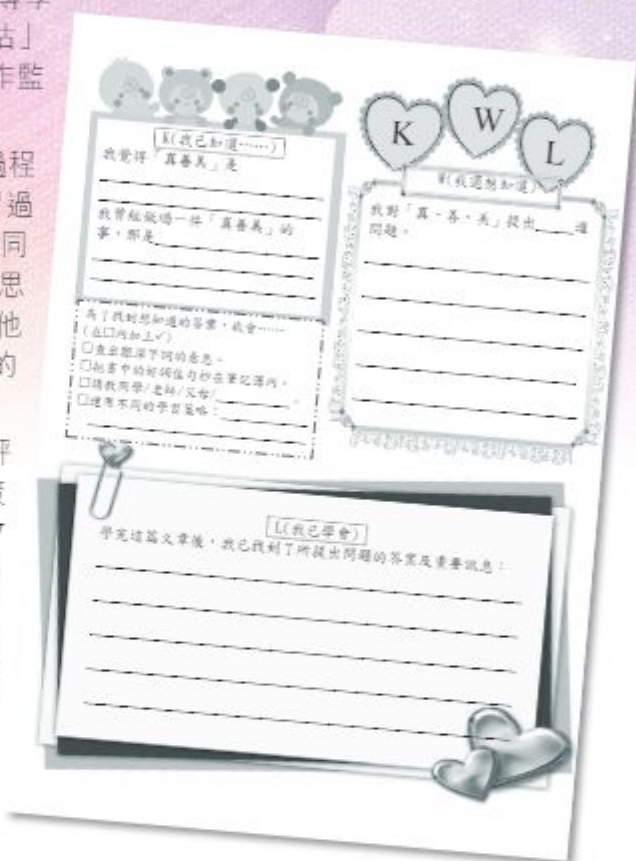 估」
作監
過程
過
同
思
他
的
評
K
W
L
K(我已知道……)
我覺得「真善美」是
我曾經做過一件「真善美」的
事，那是
為了找到想知道的答案，我會……
(在□內加上✓)
□查出艱深字詞的意思。
□把書中的好詞佳句抄在筆記簿內。
□請教同學/老師/父母/________。
□運用不同的學習策略：
W(我還想知道)
我對「真、善、美」提出____道
問題。
L(我已學會)
學完這篇文章後，我已找到了所提出問題的答案及重要訊息：